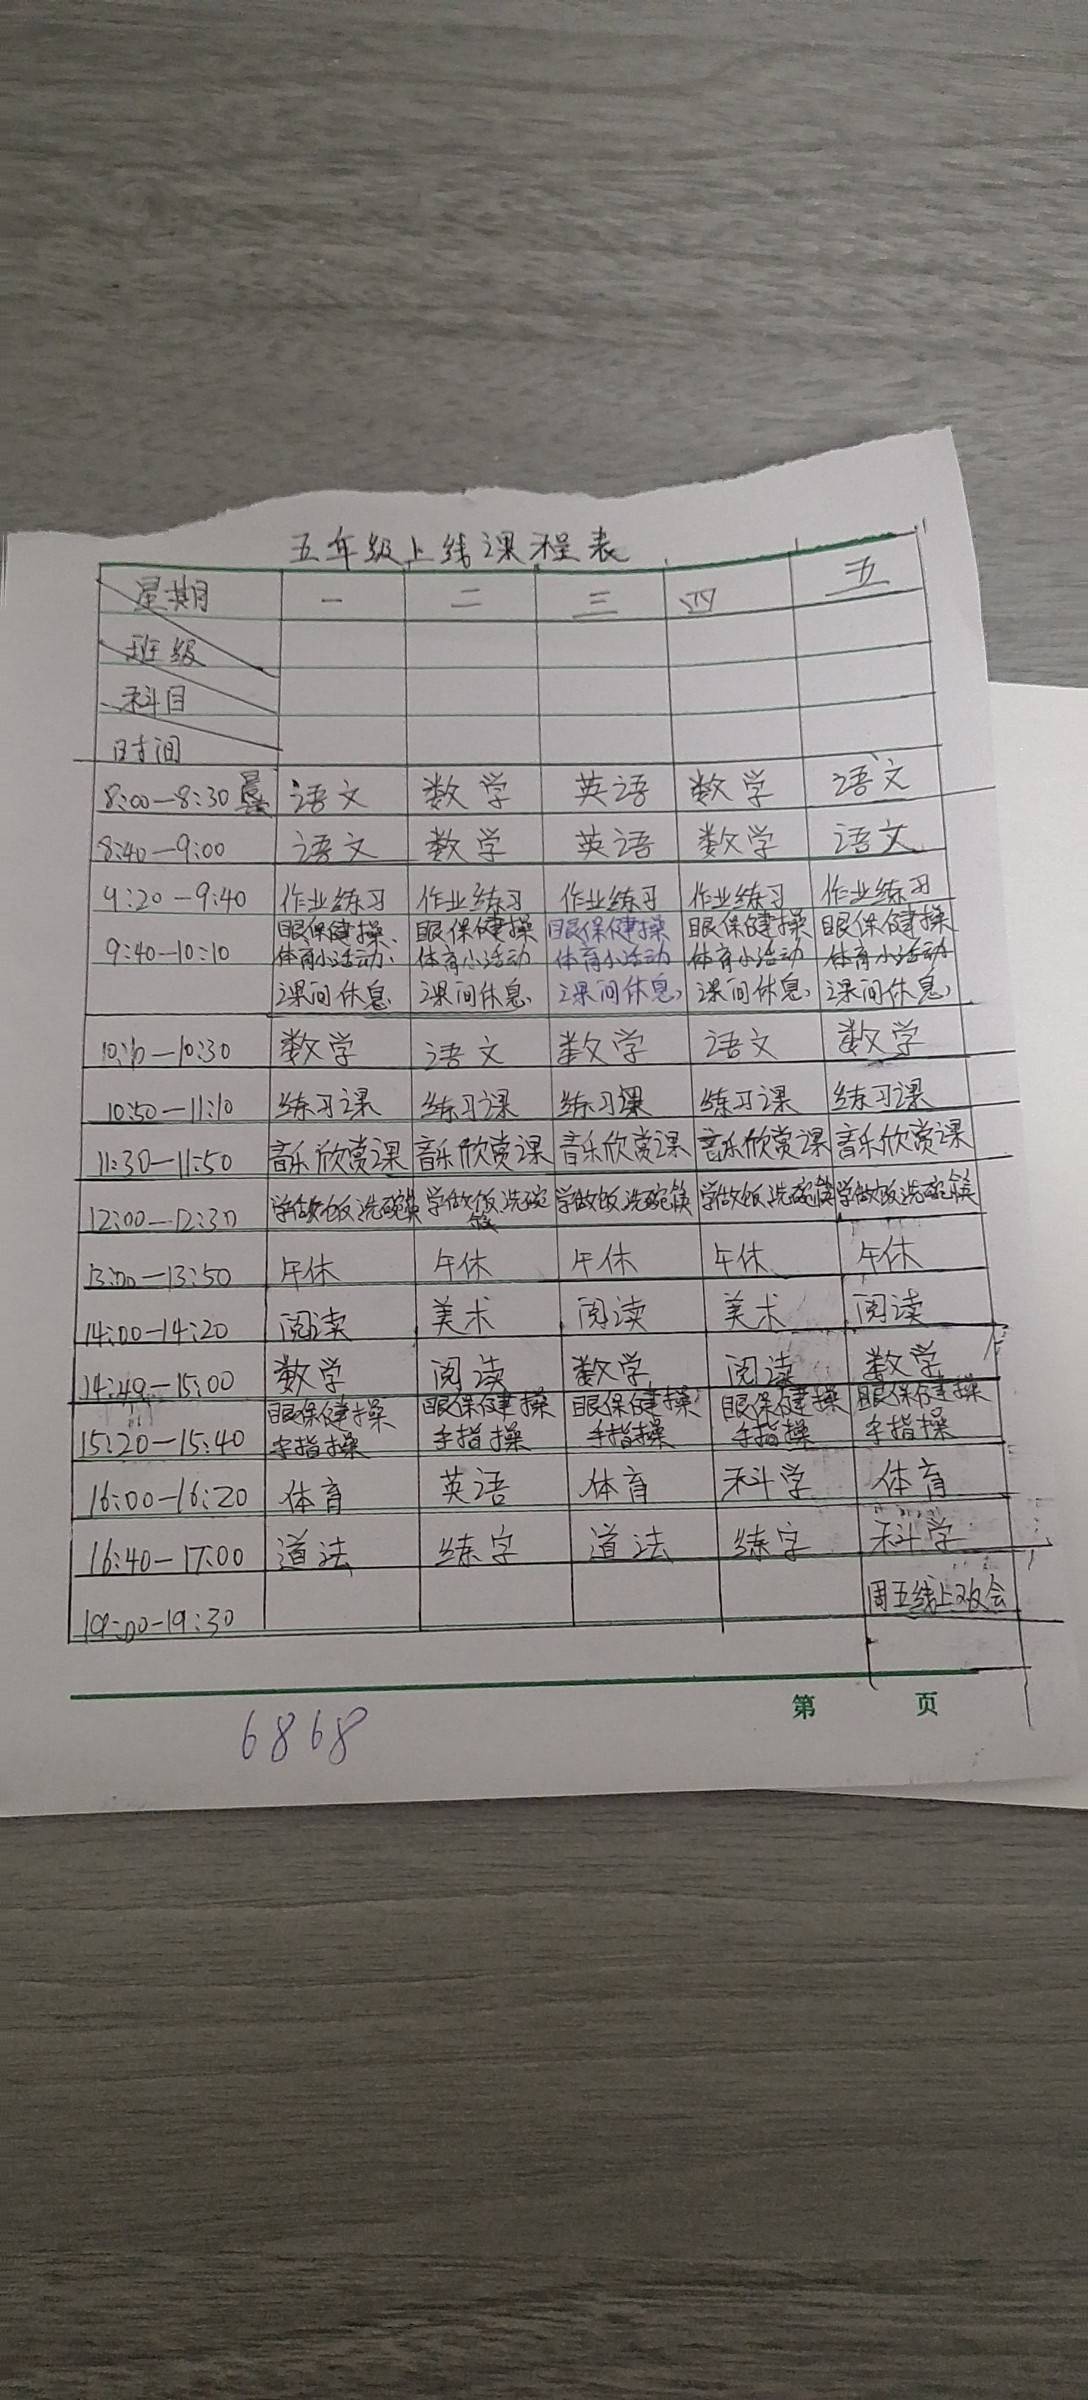 五年级上线课程表
星期 一 二 三 四 五
班级
科目
时间
8:00—8:30 语文 数学 英语 数学 语文
8:40—9:00 语文 数学 英语 数学 语文
9:20—9:40 作业练习 作业练习 作业练习 作业练习 作业练习
眼保健操、 眼保健操 眼保健操 眼保健操 眼保健操
9:40—10:10 体育小活动、 体育小活动 体育小活动 体育小活动 体育小活动
课间休息 课间休息 课间休息 课间休息 课间休息
10:10—10:30 数学 语文 数学 语文 数学
10:50—11:10 练习课 练习课 练习课 练习课 练习课
11:30—11:50 音乐欣赏课 音乐欣赏课 音乐欣赏课 音乐欣赏课 音乐欣赏课
12:00—12:30 学做饭洗碗筷 学做饭洗碗筷 学做饭洗碗筷 学做饭洗碗筷 学做饭洗碗筷
13:00—13:50 午休 午休 午休 午休 午休
14:00—14:20 阅读 美术 阅读 美术 阅读
14:40—15:00 数学 阅读 数学 阅读 数学
眼保健操 眼保健操 眼保健操 眼保健操 眼保健操
15:20—15:40 手指操 手指操 手指操 手指操 手指操
16:00—16:20 体育 英语 体育 科学 体育
16:40—17:00 道法 练字 道法 练字 科学
19:00—19:30 周五线上班会
第 页
6868